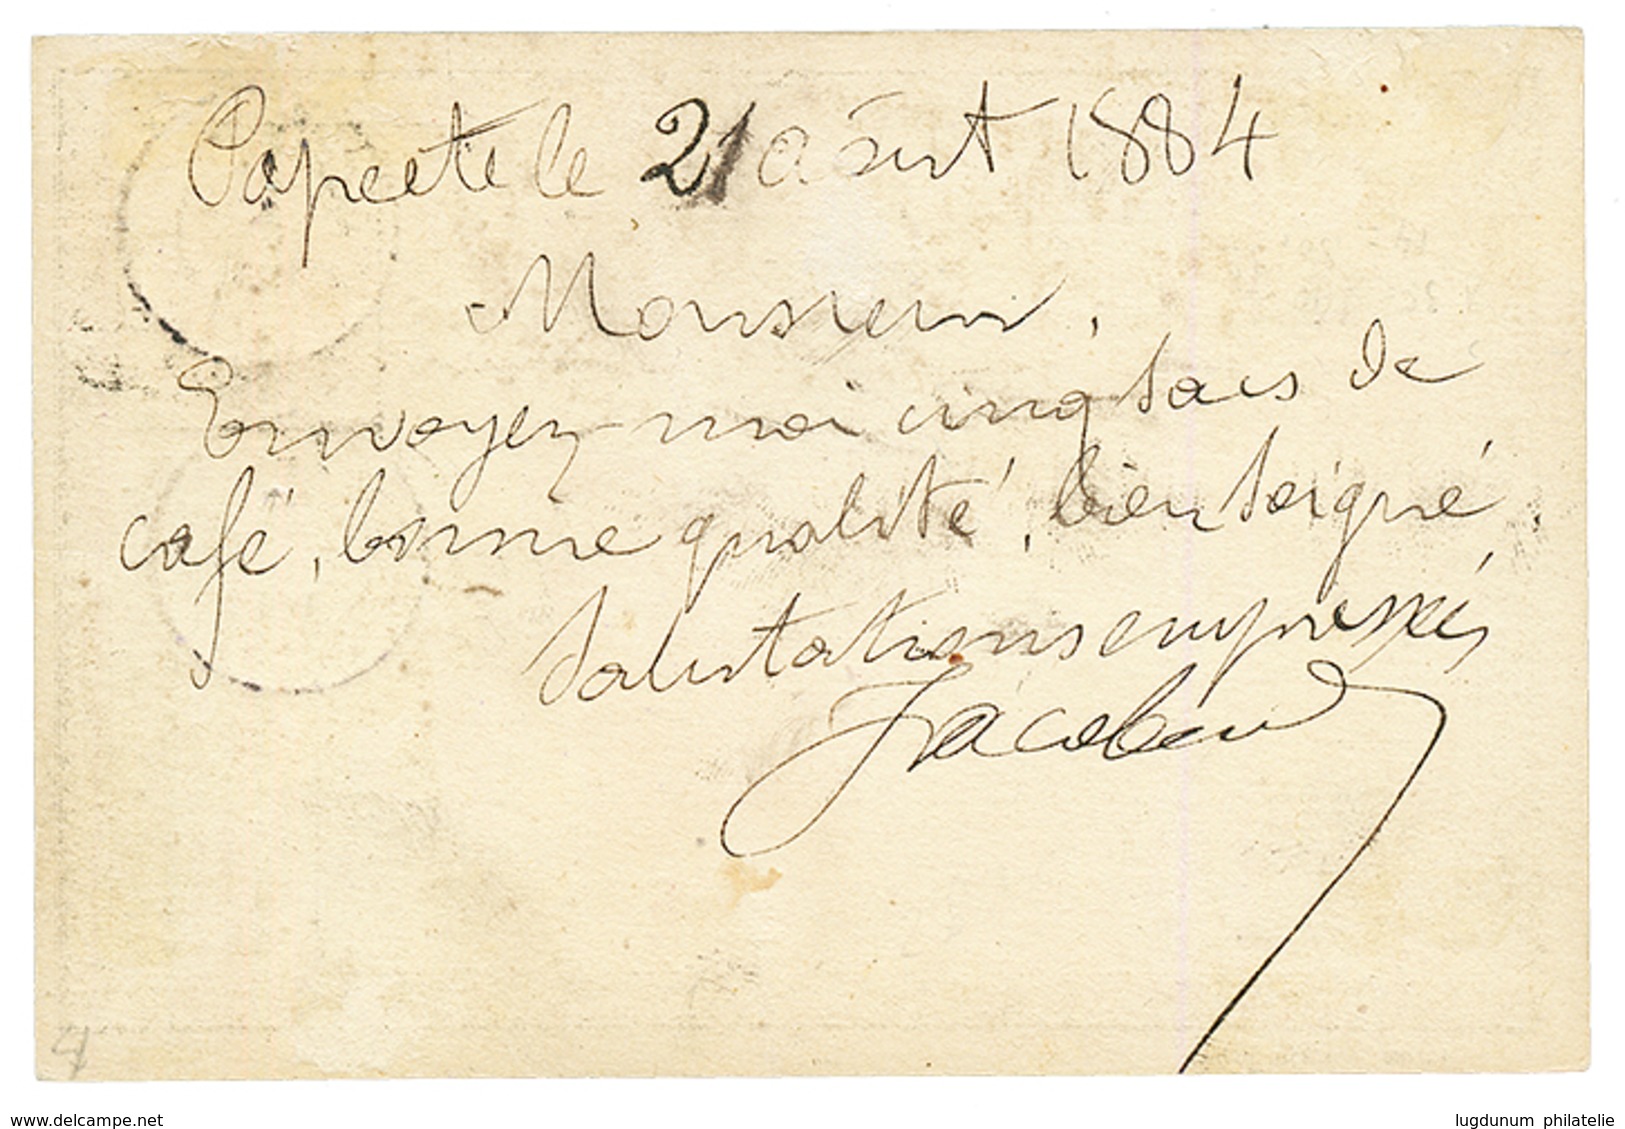 Papeete le 21 août 1884
Monsieur,
Envoyez moi cinq sacs de
café, bonne qualité, bien soigné.
Salutations empressées
www.delcampe.net
lugdunum philatelie